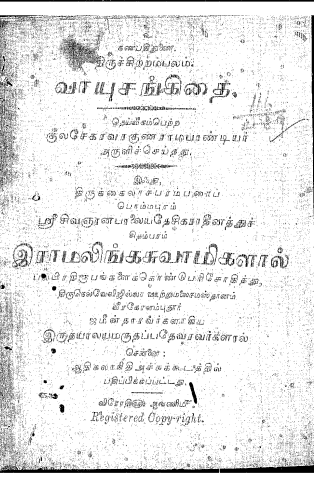 உ
கணபதிதுணை.
திருச்சிற்றம்பலம்.
வாயுசங்கிதை.
தெய்வீகம்பெற்ற
குலசேகரவரகுணராமபாண்டியர்
அருளிச்செய்தது.
இஃது,
திருக்கைலாசபரம்பரைப்
பொம்மபுரம்
ஸ்ரீசிவஞானபாலையதேசிகராதீனத்துச்
சிதம்பரம்
இராமலிங்கசுவாமிகளால்
பரிசோதித்து,
திருநெல்வேலிஜில்லா ஊற்றுமலைசமஸ்தானம்
வீரகேரளம்புதூர்
ஜமீன்தாரவர்களாகிய
இருதயாலயமருதப்பதேவரவர்களால்
சென்னை:
ஆதிகலாநிதி அச்சுக்கூடத்தில்
பதிப்பிக்கப்பட்டது.
விரோதிஹு ஆவணிமீ
Registered Copy-right.